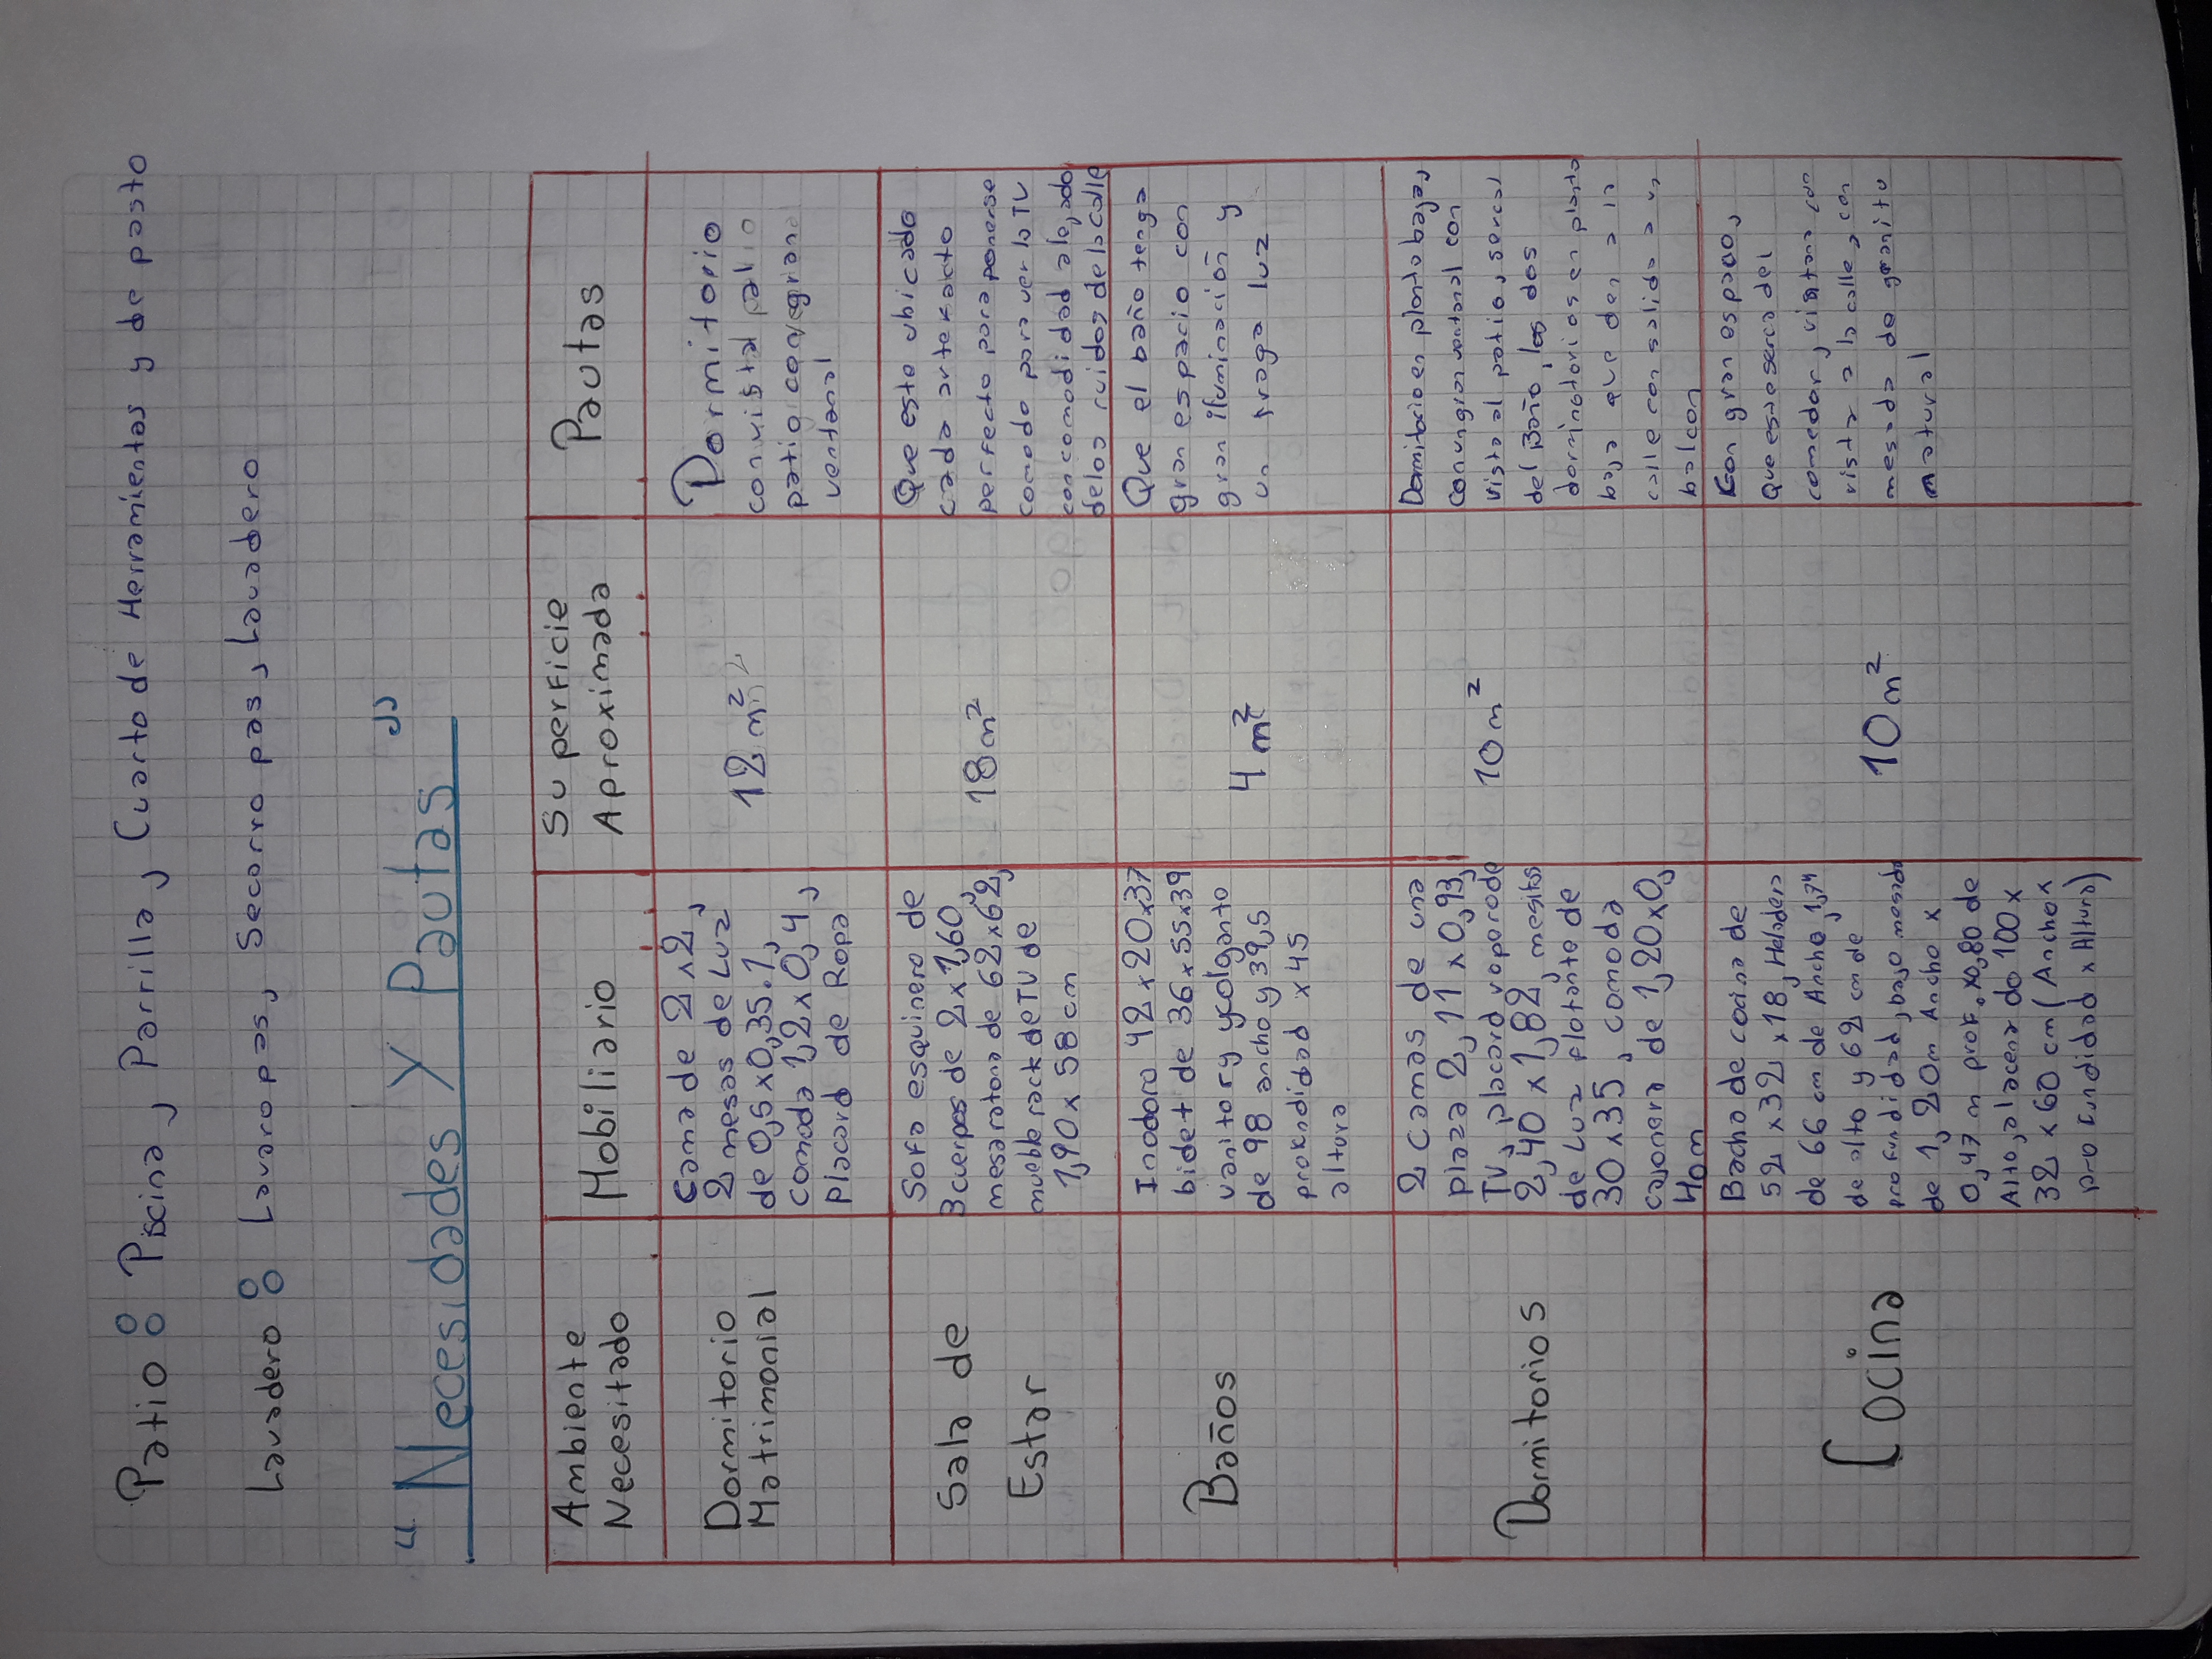 Patio: Piscina, Parrilla, Cuarto de Herramientas y de pasto
Lavadero: Lavaropas, Secorropas, Lavadero
"Necesidades y Pautas"
Ambiente
Necesitado
Mobiliario
Superficie
Aproximada
Pautas
Dormitorio
Matrimonial
Cama de 2x2,
2 mesas de Luz
de 0,5x0,35.1,
comoda 1,2x0,4,
Placard de Ropa
12 m²
Dormitorio
con vista patio
patio con gran
ventanal
Sala de
Estar
Sofa esquinero de
3 cuerpos de 2x1,60,
mesa ratona de 62x62,
mueble rack de TV de
1,90x58cm
18m²
Que este ubicado
cada artefacto
perfecto para ponerse
comodo para ver la TV
con comodidad alejado
delos ruidos de la calle
Baños
Inodoro 42x20x37
bidet de 36x55x39
vanitory colgante
de 98 ancho y 39,5
profundidad x45
altura
4 m²
Que el baño tenga
gran espacio con
gran iluminación y
un traga luz
Dormitorios
2 camas de una
plaza 2,11x0,93,
TV, placard vopero de
2,40x1,82, mesitas
de Luz flotante de
30x35, comoda
cajonera de 1,20x0,
40m
10m²
Dormitorio en planta baja,
con un gran ventanal con
vista al patio, serca
del Baño, los dos
dormitorios en planta
baja que den a la
calle con salida a un
balcon
Cocina
Bacha de cocina de
52x32x18, Heladera
de 66 cm de Ancho, 1,74
de alto y 62 cm de
profundidad, bajo mesada
de 1,20m Ancho x
0,47 m prof. x0,80 de
Alto, alacena do 100x
32x60cm (Ancho x
profundidad x Altura)
10m²
Con gran espacio,
Que este serca del
comedor, ventana con
vista a la calle, con
mesada de granito
natural